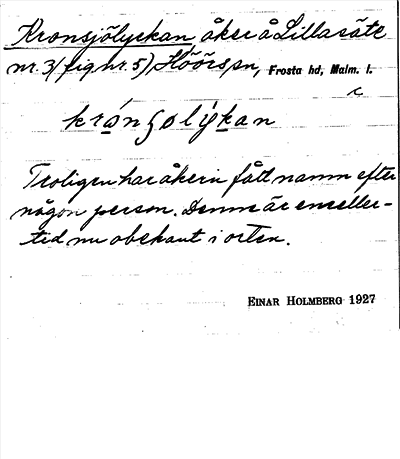 Kronsjölyckan åker å Lillasäte
nr. 3 (fig nr. 5), Höörs sn, Frosta hd, Malm. l.
c
krónʃolýkan
Troligen har åkern fått namn efter
någon person. Denne är emeller-
tid nu obekant i orten.
EINAR HOLMBERG 1927